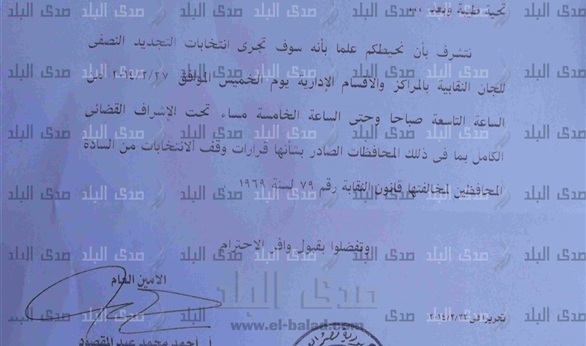 تحية طيبة وبعد ،،،،
نتشرف بأن نحيطكم علما بأنه سوف تجرى انتخابات التجديد النصفى
للجان النقابية بالمراكز والأقسام الإدارية يوم الخميس الموافق ٢٠١٤/٣/٢٧ من
الساعة التاسعة صباحا وحتى الساعة الخامسة مساء تحت الإشراف القضائى
الكامل بما فى ذلك المحافظات الصادر بشأنها قرارات وقف الانتخابات من السادة
المحافظين لمخالفتها قانون النقابة رقم ٧٩ لسنة ١٩٦٩
وتفضلوا بقبول وافر الاحترام
الامين العام
صدى البلد
www.el-balad.com
تحريرا فى
أ. احمد محمد عبد المقصود